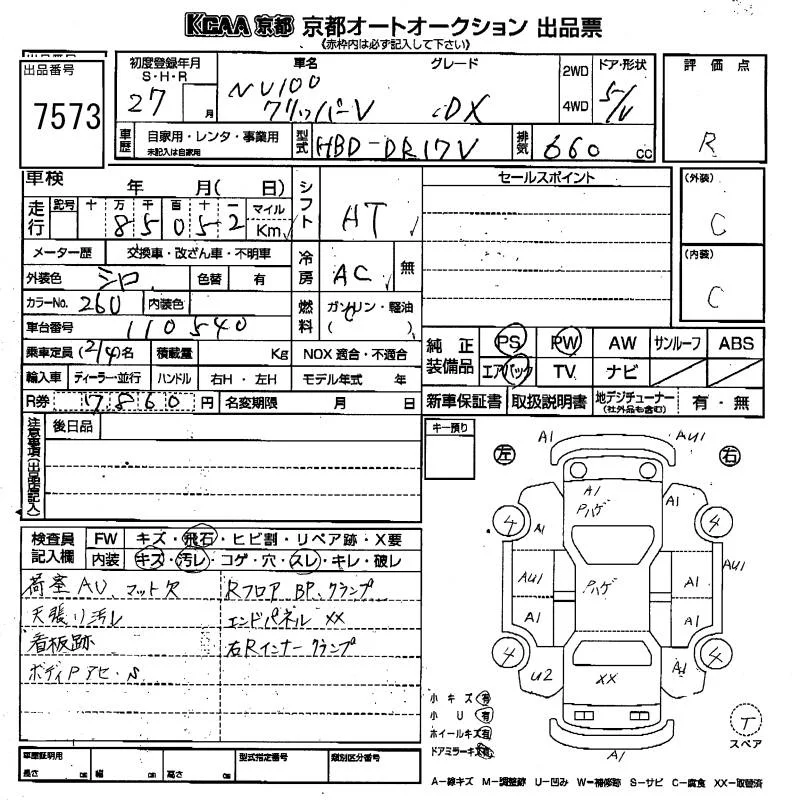 KCAA 京都 京都オートオークション 出品票
《赤枠内は必ず記入して下さい》
出品番号
7573
初度登録年月
S・H・R
27 月
車名
NV100
クリッパーV
グレード
DX
2WD
4WD
ドア・形状
5/V
評価点
R
車歴
自家用・レンタ・事業用
未記入は自家用
型式
HBD-DR17V
排気
660 cc
車検 年 月( 日)
走行
記号 十 万 千 百 十 一
8 5 0 5 2
マイル
Km
シフト
AT
セールスポイント
(外装)
C
(内装)
C
メーター歴 交換車・改ざん車・不明車
冷房
AC
無
外装色 シロ 色替 有
カラーNo. 260 内装色
燃料
ガソリン・軽油
( )
車台番号 110540
乗車定員 (2/4)名 積載量 Kg NOX 適合・不適合
輸入車 ディーラー・並行 ハンドル 右H・左H モデル年式 年
R券 7860 円 名変期限 月 日
純正装備品
PS PW AW サンルーフ ABS
エアバック TV ナビ
新車保証書 取扱説明書 地デジチューナー(社外品も含む) 有・無
注意事項(出品店記入)
後日品
キー預り
検査員記入欄
FW キズ・飛石・ヒビ割・リペア跡・X要
内装 キズ・汚レ・コゲ・穴・スレ・キレ・破レ
荷室AU、マット欠
天張リ汚レ
看板跡
ボディPアセ・S
Rフロア BP、クランプ
エンドパネル XX
右Rインナー クランプ
左 右
A1 AU1
A1
Pハゲ
A1
A1
4 4
AU1
A1
Pハゲ
A1
A1
4 4
U2
XX
A1
A1
小キズ 有
小U 有
ホイールキズ 有
ドアミラーキズ 有
T
スペア
車庫証明用
長さ cm 幅 cm 高さ cm
型式指定番号
類別区分番号
A-線キズ M-調整跡 U-凹み W-補修跡 S-サビ C-腐食 XX-取替済